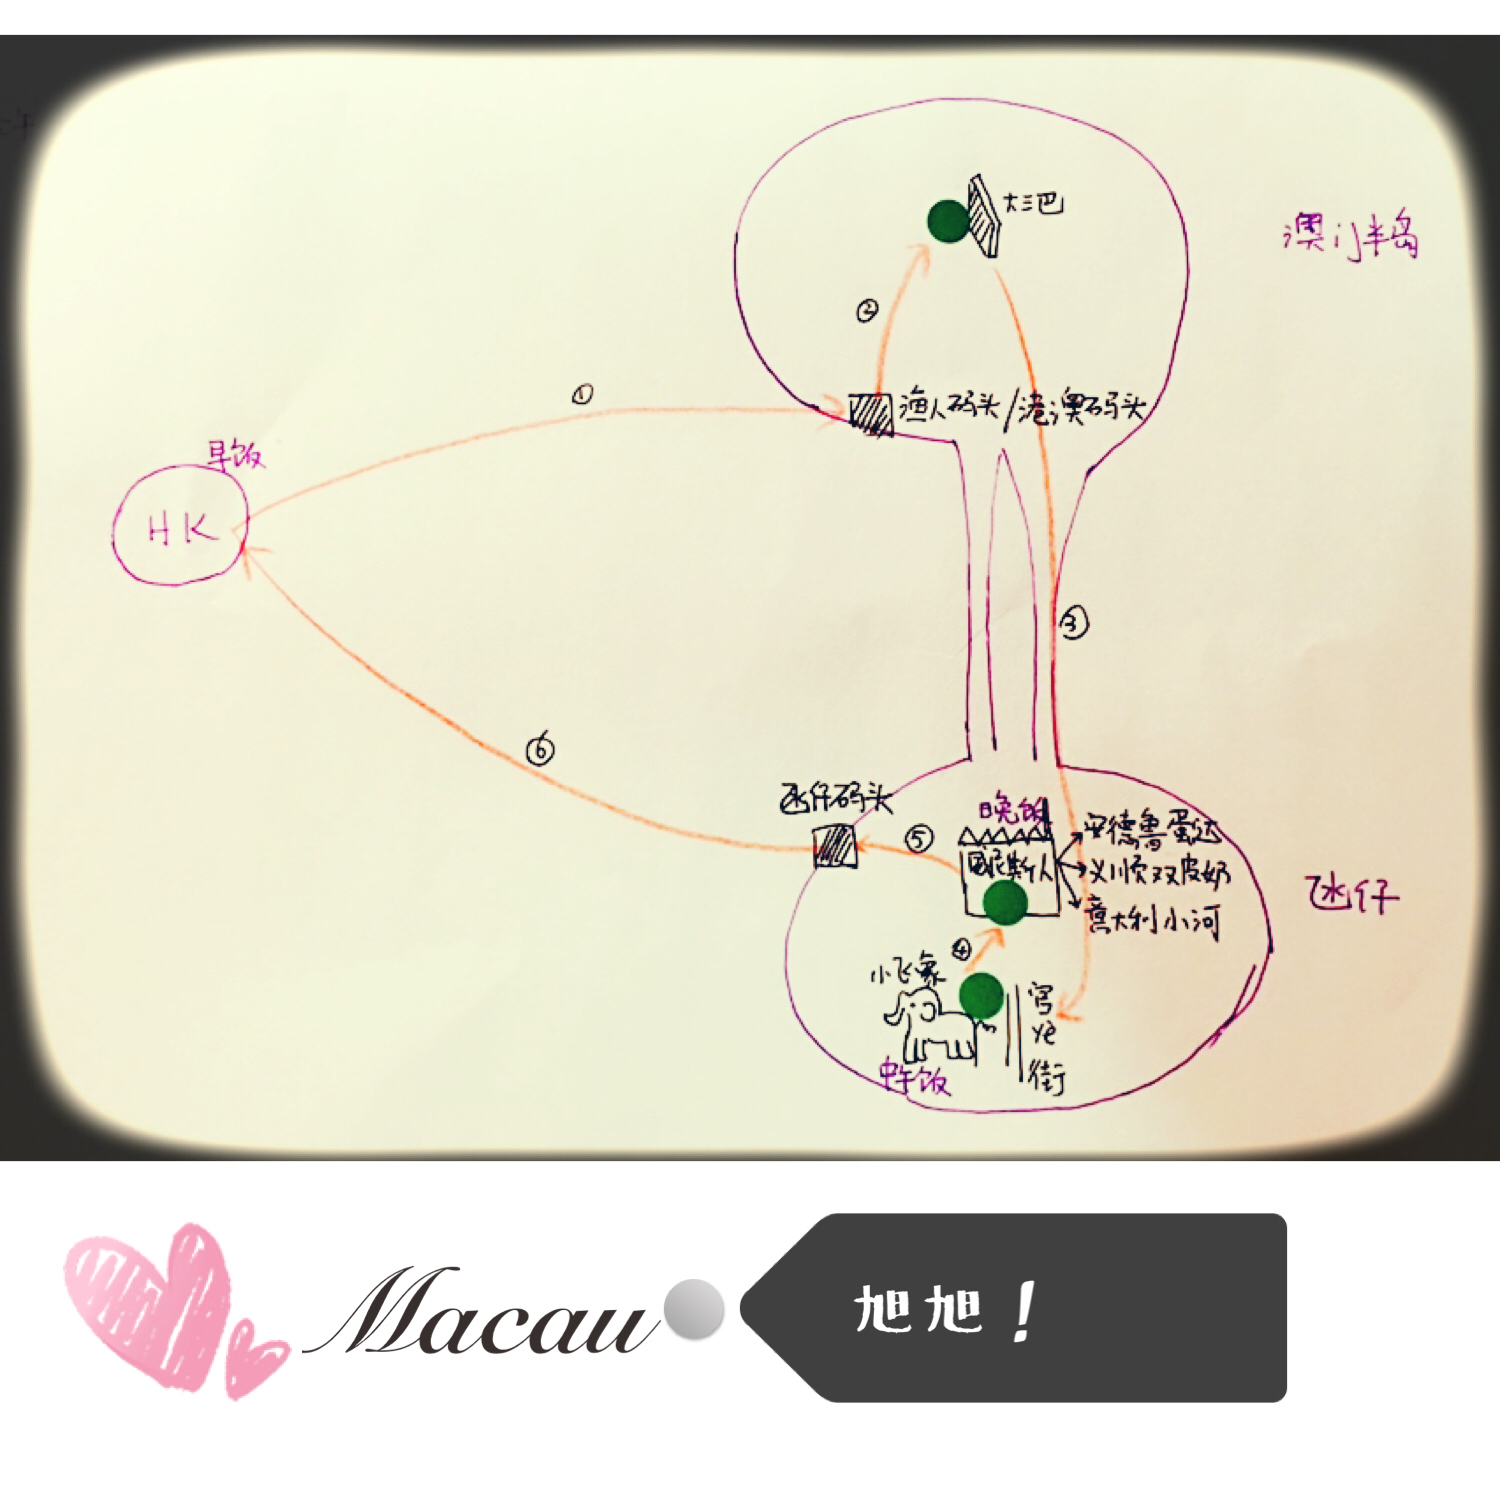 大三巴
澳门半岛
②
①
渔人码头/港澳码头
早饭
HK
③
⑥
氹仔码头
晚饭
⑤
威尼斯人
安德鲁蛋达
义顺双皮奶
意大利小河
氹仔
④
小飞象
官也街
中午饭
Macau
旭旭！